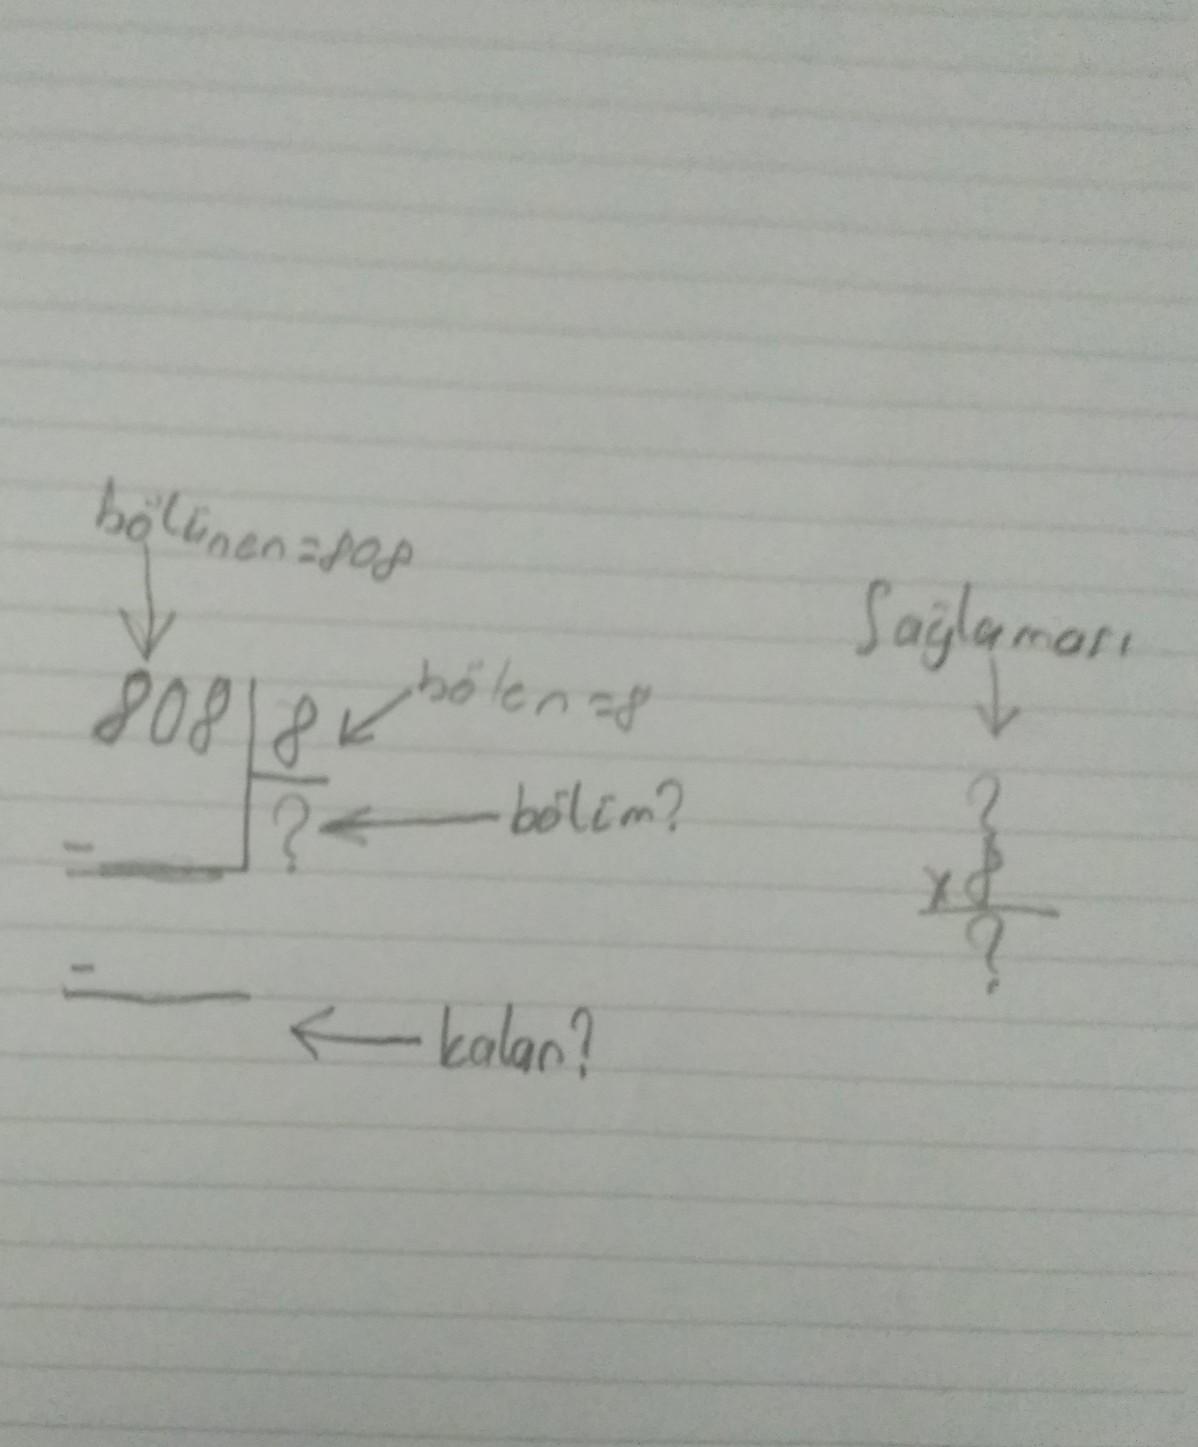 bölünen=808
Sağlaması
808 8 bölen=8
? bölüm?
-
?
x 8
?
-
kalan?